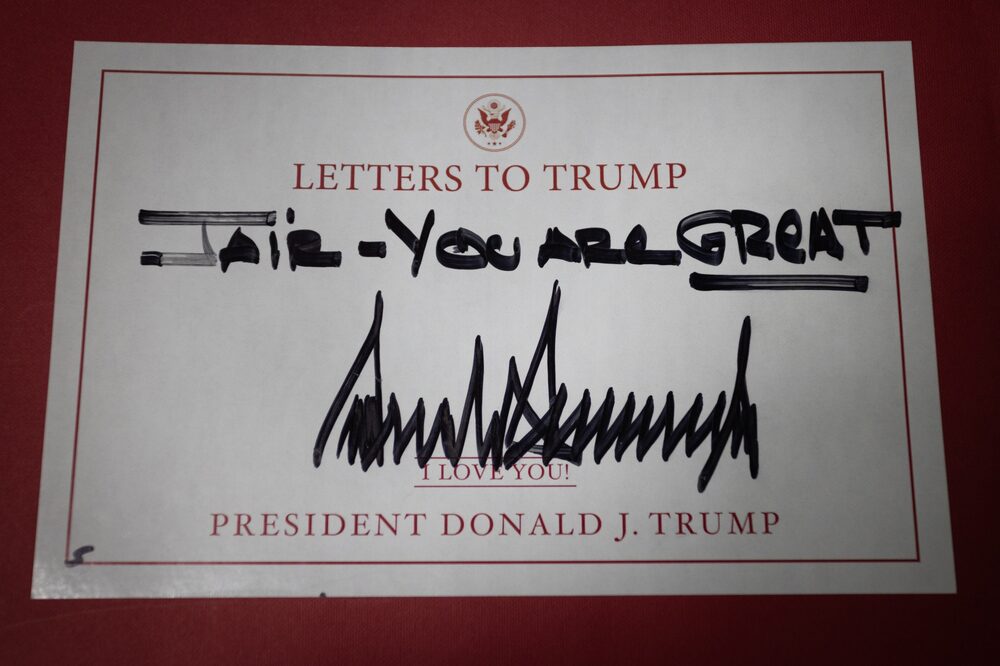 LETTERS TO TRUMP
JAIR - YOU ARE GREAT
I LOVE YOU!
PRESIDENT DONALD J. TRUMP